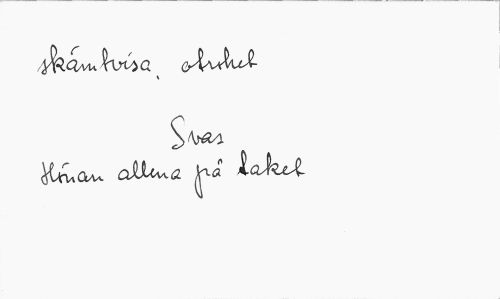 skämtvisa, otryckt
Svar
Hönan allena på taket